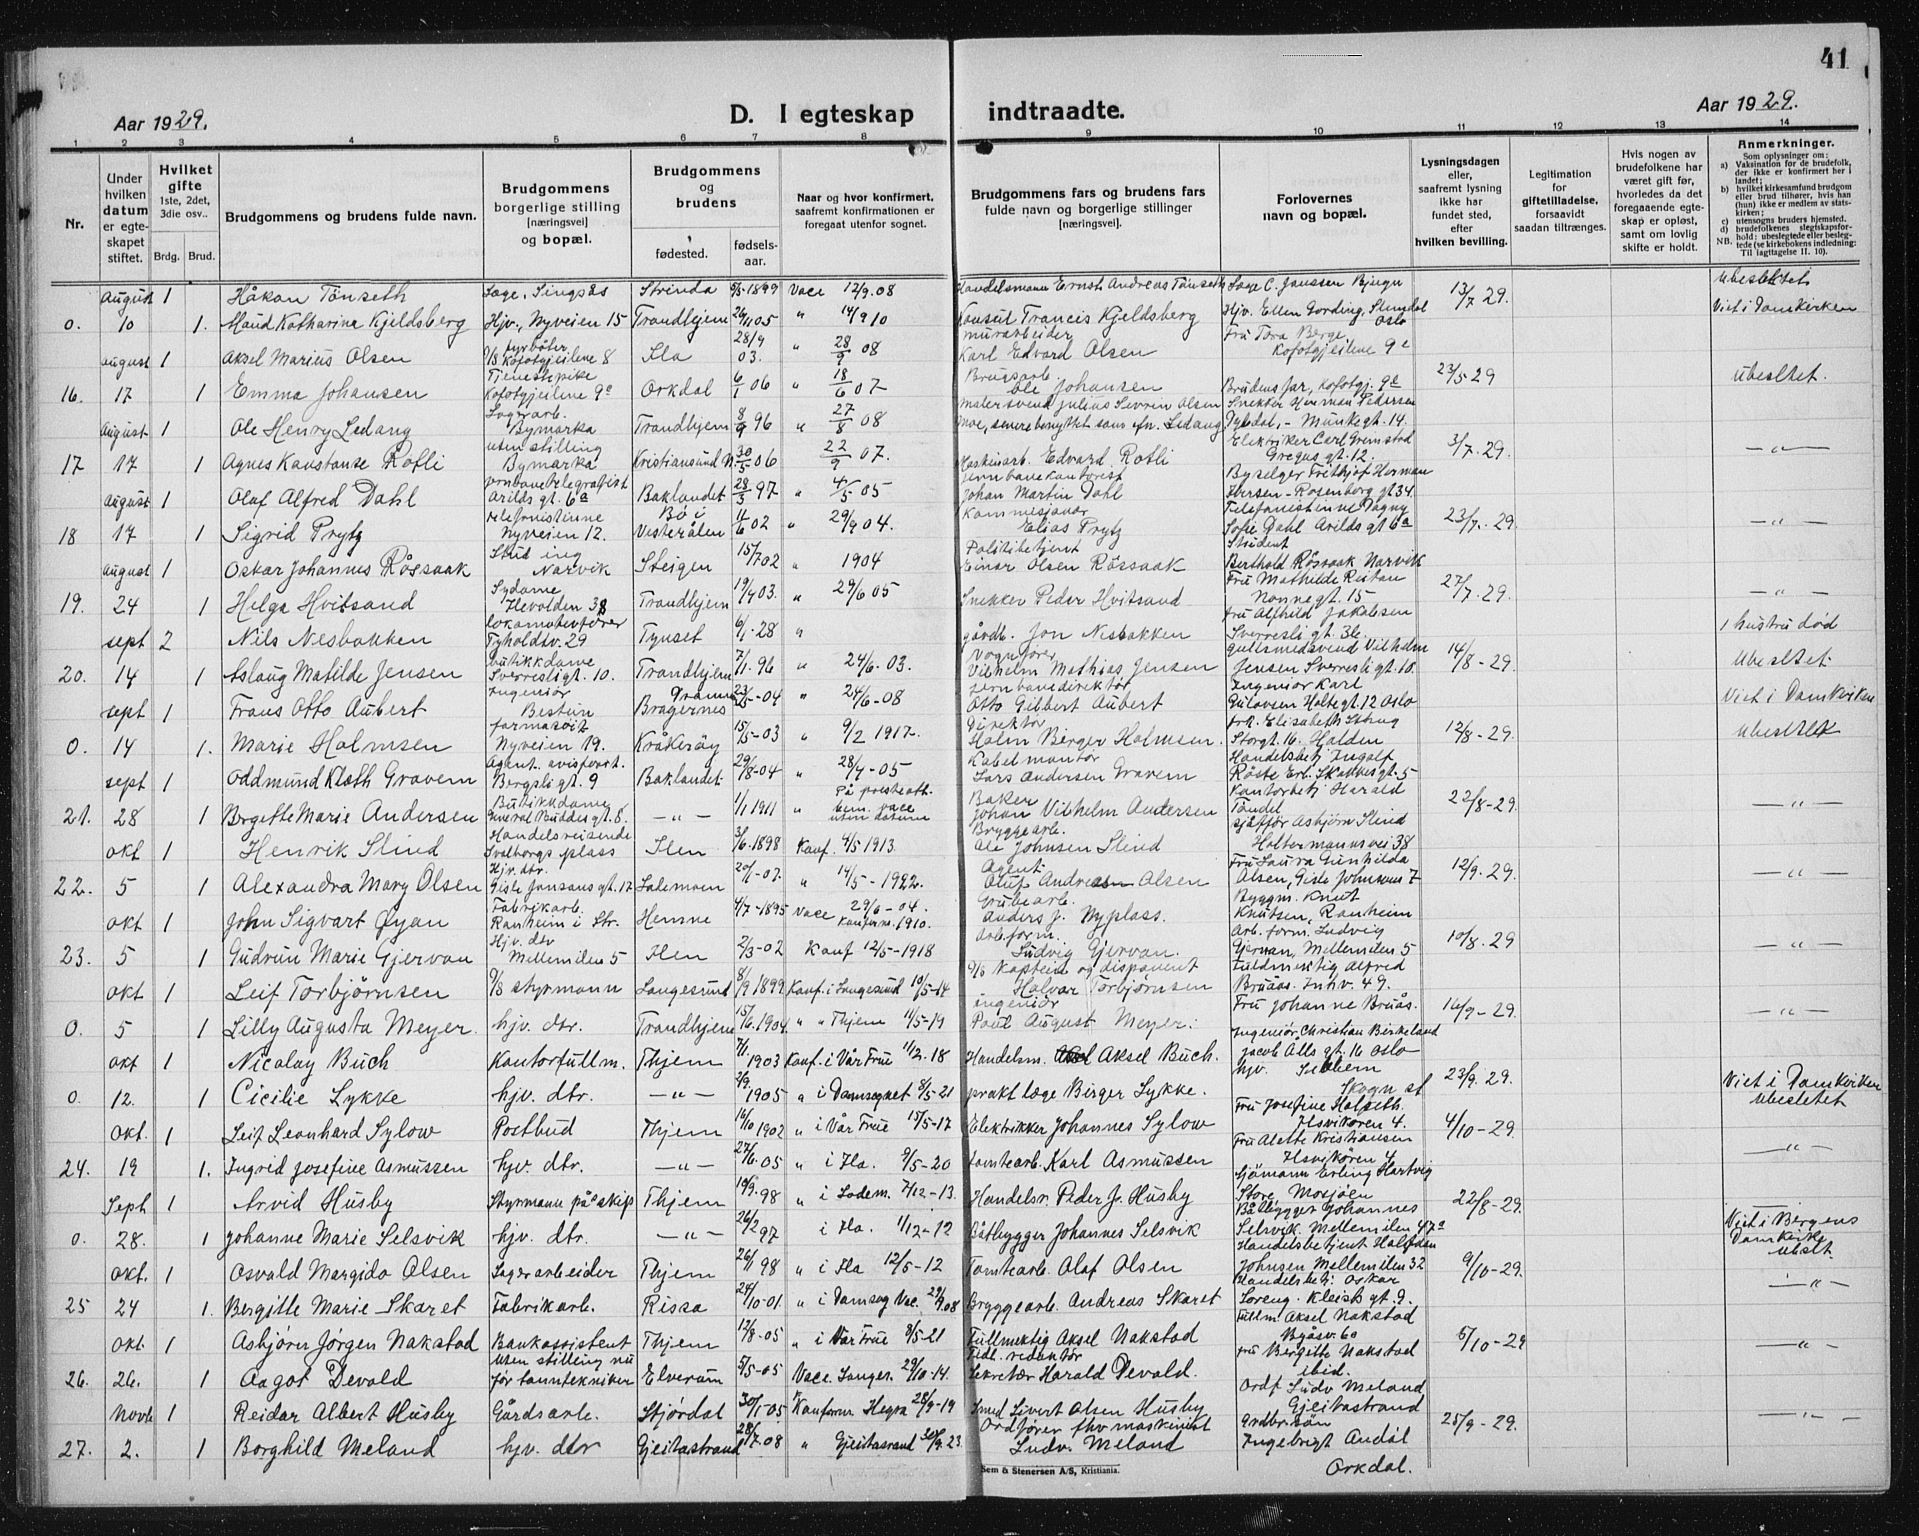 41
Aar 1929.
D. I egteskap indtraadte.
Aar 1929.
1 2 3 4 5 6 7 8 9 10 11 12 13 14
Nr.
Under hvilken datum er egteskapet stiftet.
Hvilket gifte 1ste, 2det, 3die osv..
Brdg. Brud.
Brudgommens og brudens fulde navn.
Brudgommens borgerlige stilling [næringsvei] og bopæl.
Brudgommens og brudens
fødested. fødselsaar.
Naar og hvor konfirmert, saafremt konfirmationen er foregaat utenfor sognet.
Brudgommens fars og brudens fars fulde navn og borgerlige stillinger [næringsvei].
Forlovernes navn og bopæl.
Lysningsdagen eller, saafremt lysning ikke har fundet sted, efter hvilken bevilling.
Legitimation for giftetilladelse, forsaavidt saadan tiltrænges.
Hvis nogen av brudefolkene har været gift før, hvorledes da det foregaaende egteskap er opløst, samt om lovlig skifte er holdt.
Anmerkninger.
Som oplysninger om:
a) Vaksination for de brudefolk, der ikke er konfirmert her i landet;
b) hvilket kirkesamfund brudgom eller brud tilhører, hvis han (hun) ikke er medlem av statskirken;
c) utensogns bruders hjemsted.
d) brudefolkenes slegtskapsforhold: ubeslegtede eller beslegtede (se kirkebokens indledning: NB. Til iagttagelse II. 10).
august 1 Håkon Tönseth Læge, Singsås Strinda 1899 Vace 12/9 08 Handelsmann Ernst Andreas Tönseth Læge C. Janssen 13/7 29. Ubesltet
0. 10 1. Maud Katharina Kjeldsberg Hjv., Nyveien 15 Trondhjem 05 " 14/9 10 Konsul Francis Kjeldsberg Hjv. Ellen Gording, Slemdal Oslo Viet i Domkirken
august 1 Aksel Marius Olsen fyrbøter Kofotgjeilene 8 Ila 28/9 03. " 28/9 08 murarbeider Karl Edvard Olsen Fru Tora Berge, Kofotgjeilene 9c
16. 17 1 Emma Johansen Tjenestepike Kofotgjeilene 9c Orkdal 6/1 06 " 18/6 07 Brugsarb. Ole Johansen Brudens far, Kofotgj. 9c 23/5 29 ubesltet.
august 1 Ole Henry Ledang Lagerarb. Bymarka Trondhjem 8/9 96 " 27/8 08 Malersvend Julius Sevrin Olsen Moe, senere benyttet som efn. Ledang Snekker Herman Pedersen - Munkegt. 14.
17 17 1 Agnes Konstanse Rotli uten stilling Bymarka Kristiansund N. 30/5 06 22/9 07. Maskinarb. Edvard Rotli Elektriker Carl Grimstad Gregus gt. 12. 3/7 29. — " —
august 1 Olaf Alfred Dahl Jernbanetelegrafist Arilds gt. 6a Baklandet 28/3 97 " 4/5 05 Jernbanekontorist Johan Martin Dahl Byselger Frithjof Herman Iversen - Rosenborg gt 34.
18 17 1 Sigrid Prytz Telefonistinne Nyveien 12. Bö i Vesterålen 11/6 02 " 29/9 04. Elias Prytz Telefonistinne Dagny Sofie Dahl Arilds gt 6a 23/7. 29. — " —
august 1 Oskar Johannes Rössaak Stud ing Narvik Steigen 15/7 02 " 1904 Politibetjent Einar Olsen Rössaak Student Berthold Rössaak Narvik
19. 24 1 Helga Hvitsand Sydame Ilevolden 38 Trondhjem 19/4 03. " 29/6 05 Snekker Peder Hvitsand Fru Mathilde Ristan Nonnegt. 15 27/7. 29. — " —
sept 2 Nils Nesbakken lokomotivfører Tyholdtv. 29 Tynset 6/1 - 28 " gårdb. Jon Nesbakken Fru Alfhild Jakobsen Sverresli gt. 3b. 1 hustru død
20. 14 1 Aslaug Matilde Jensen butikkdame Sverresligt. 10. Trondhjem 7/11. 96 " 24/6 - 03. Vognfører Vilhelm Mathias Jensen Gullsmedsvend Vilhelm Jensen Sverresli gt. 10. 14/8 - 29. Ubesltet.
sept 1 Frans Otto Aubert Ingeniör Bestun Drammen Bragernes - 04 " 24/6 - 08 Jernbanedirektör Otto Gilbert Aubert Ingeniör Karl Gulovsen Holtegt. 12 Oslo Viet i Domkirken
0. 14 1. Marie Holmsen farmasöit Nyveien 19. Kråkeröy 15/5 - 03 " 9/2 1917. Direktör Holm Berger Holmsen. Frk. Elisabeth Storgt. 16. Halden 12/8 - 29. Ubesltet
sept 1 Oddmund Kloth Gravem Agent. Bergsli gt. 9 Baklandet 29/8 - 04 " 28/4 - 05 Kabelmontör Lars Andersen Gravem Handelsbetj Ingolf Röste Erl. Skakkes gt. 5
21. 28 1 Borgette Marie Andersen Butikkdame General Buddes gt. 8. — " — 1/1 1911 " uten datum Baker Johan Vilhelm Andersen Kontorbetj Harald Töndel 22/8 - 29. — " —
okt 1 Henrik Slind Handelsreisende Svalborgs plass Ilen 3/6. 1898 Konf. 4/5 1913. Bryggearb. Ole Johnsen Slind sjåför Asbjörn Slind Holtermannsvei 38
22. 5 1 Alexandra Mary Olsen Hjv. dtr. Gisle Jonsons gt. 17 Lademoen 20/1 - 07. " 14/5 - 1922. Agent Oluf Andreas Olsen Fru Laura Gunhilda Olsen, Gisle Johnsons 7 12/9. 29. — " —
okt 1 John Sigvart Öyan Fabrikarb. Ranheim i Str. Hemne 4/7 - 1895 Vace 29/6 - 04. Konfirm. 1910. Grubearb. Anders J. Nyplass. Byggm. Knut Knutsen, Ranheim
23. 5 1 Gudrun Marie Gjervan Hjv. dtr Mellemilen 5 Ilen 2/3 - 02 Konf 12/5 - 1918 Arb.form. Ludvig Gjervan. Arb. form. Ludvig Gjervan, Mellemilen 5 10/8. 29 — " —
okt 1 Leif Torbjörnsen styrmann Langesund 8/9 1899 Konf. i Langesund 10/5 - 14 Kaptein og disponent Halvar Torbjörnsen Fuldmektig Alfred Bruås. Inhv. 49.
0. 5 1 Lilly Augusta Meyer. hjv. dtr. Trondhjem 15/6. 1904. " " Thjem 11/5 - 19 ingeniör Paul August Meyer. Fru Johanne Bruås. 16/9 - 29. — " —
okt 1 Nicolay Buch Kontorfullm. Thjem 7/1. 1903 Konf. i Vår Frue 1/12. 18 Handelsm. Aksel Buch. Ingeniör Christian Birkeland Jacob Alls gt. 16 Oslo
0. 12. 1 Cicilie Lykke hjv. dtr. — " — 2/9. 1905 " i Domsognet 8/5 - 21 prakt læge Birger Lykke. hjv. Skogn st 23/9. 29. Viet i Domkirken ubesletet
okt. 1 Leif Leonhard Sylow Postbud Thjem 16/10 1902 " i Vår Frue 15/5 - 17 Elektrikker Johannes Sylow Fru Josefine Holseth. Ilsvikören 4. 4/10 - 29.
24. 19 1. Ingrid Josefine Asmussen hjv. dtr. — " — 27/6. 05 " i Ila. 9/5 - 20 Tomtearb. Karl Asmussen Fru Alette Kristiansen Ilsvikören 4 — " —
Sept 1 Arvid Husby Styrmann på skip Thjem 10/9. 98 " i Ladem. 7/12 - 13. Handelsr. Peder Jr. Husby Sjömann Erling Hartvig Store, Mosjöen 22/8 - 29.
0. 28. 1 Johanne Marie Selsvik hjv. dtr. — " — 26/2 97 i Ila. 1/12 - 12 Båtbygger Johannes Selsvik Båtbygger Johannes Selsvik. Mellemilen 47a Viet i Bergens Domkirke ubeslt.
okt. 1 Osvald Margido Olsen Lagerarbeider Thjem 26/1 98 " i Ila 12/5 - 12 Tomtearb. Olaf Olsen Handelsbetjent Halfdan Johnsen Mellemilen 32 9/10 - 29.
25 24 1. Bergitte Marie Skaret Fabrikarb. Rissa 24/10 - 01. " i Domsog Vac. 29/9. 08 Bryggearb. Andreas Skaret Handelsbetj. Oskar Loreng. Kleists gt. 9. — " —
okt. 1 Asbjörn Jörgen Nakstad Bankassistent Thjem 12/8 - 05 " i Vår Frue 8/5 - 21 Fullmektig Aksel Nakstad Fullm. Aksel Nakstad Byåsv. 60 5/10 - 29
26. 26. 1 Aagot Devold uten stilling nu før tanntekniker Elverum 5/5 - 05 Vace. Sanger. 29/10 - 14. Tidl. redaktör Sekretær Harald Devold. Fru Bergitte Nakstad ibid. — " —
Novb 1 Reidar Albert Husby Gårdsarb. Stjördal 30/1 - 05 Konfirm Hegra 28/9 - 19 Smed Sivert Olsen Husby Ordf Ludv Meland Gjeitastrand
27. 2. 1 Borghild Meland hjv. dtr Gjeitastrand 08 " Gjeitastrand 30/9. 23. Ordförer fhv maskinist Ludv. Meland Grdbr.sön Ingebrigt Andål Orkdal. 25/9 - 29. — " —
Sem & Stenersen A/S, Kristiania.